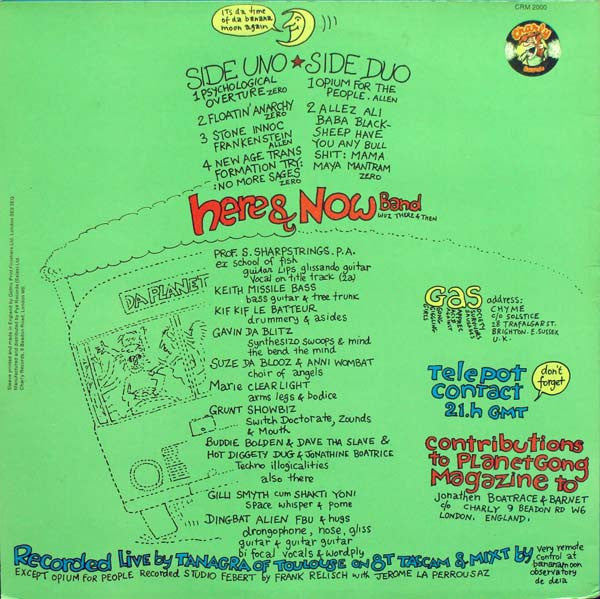 ITs da time
of da banana
moon again
CRM 2000
Charly
Records
SIDE UNO ★ SIDE DUO
1 PSYCHOLOGICAL
OVERTURE ZERO
2 FLOATIN' ANARCHY
ZERO
3 STONE INNOC
FRANKENSTEIN
ALLEN
4 NEW AGE TRANS
FORMATION TRY:
NO MORE SAGES
ZERO
1 OPIUM FOR THE
PEOPLE. ALLEN
2 ALLEZ ALI
BABA BLACK-
SHEEP HAVE
YOU ANY BULL
SHIT: MAMA
MAYA MANTRAM
ZERO
here & NOW Band
WUZ THERE & THEN
DA PLANET
PROF. S. SHARPSTRINGS. P.A.
ex school of fish
guitar Lips glissando guitar
Vocal on title track (2a)
KEITH MISSILE BASS
bass guitar & tree trunk
KIF KIF LE BATTEUR
drummery & asides
GAVIN DA BLITZ
Synthesizo swoops & mind
the bend. the mind
SUZE DA BLOOZ & ANNI WOMBAT
choir of angels
Marie CLEARLIGHT
arms legs & bodice
GRUNT SHOWBIZ
Switch Doctorate, Zounds
& Mouth
BUDDIE BOLDEN & DAVE THA SLAVE &
HOT DIGGETY DUG & JONATHINE BOATRICE
Techno illogicalities
also there
GILLI SMYTH cum SHAKTI YONI
Space whisper & pome
DINGBAT ALIEN FBU & hugs
drongophone, nose, gliss
guitar & guitar guitar
bi focal vocals & wordply
GAS
address:
CHYME
c/o SOLSTICE
28 TRAFALGAR ST.
BRIGHTON. E. SUSSEX
U.K.
Telepot
contact
21.h GMT
don't
forget
contributions
to PLANETGONG
Magazine to
Jonathen BOATRACE & BARNET
c/o CHARLY 9 BEADON RD W6
LONDON. ENGLAND.
Recorded LIVE by TANAGRA OF TOULOUSE on 8T TASCAM & MIXT by
very remote
control at
bananamoon
observatory
de deia
EXCEPT OPIUM FOR PEOPLE Recorded STUDIO FEBERT by FRANK RELISCH with JEROME LA PERROUSAZ
Sleeve printed and made in England by Delta Print Finishers Ltd. London SE8 3EQ
Manufactured and distributed by Pye Records (Sales) Ltd.
Charly Records, 9 Beadon Road, London W6.